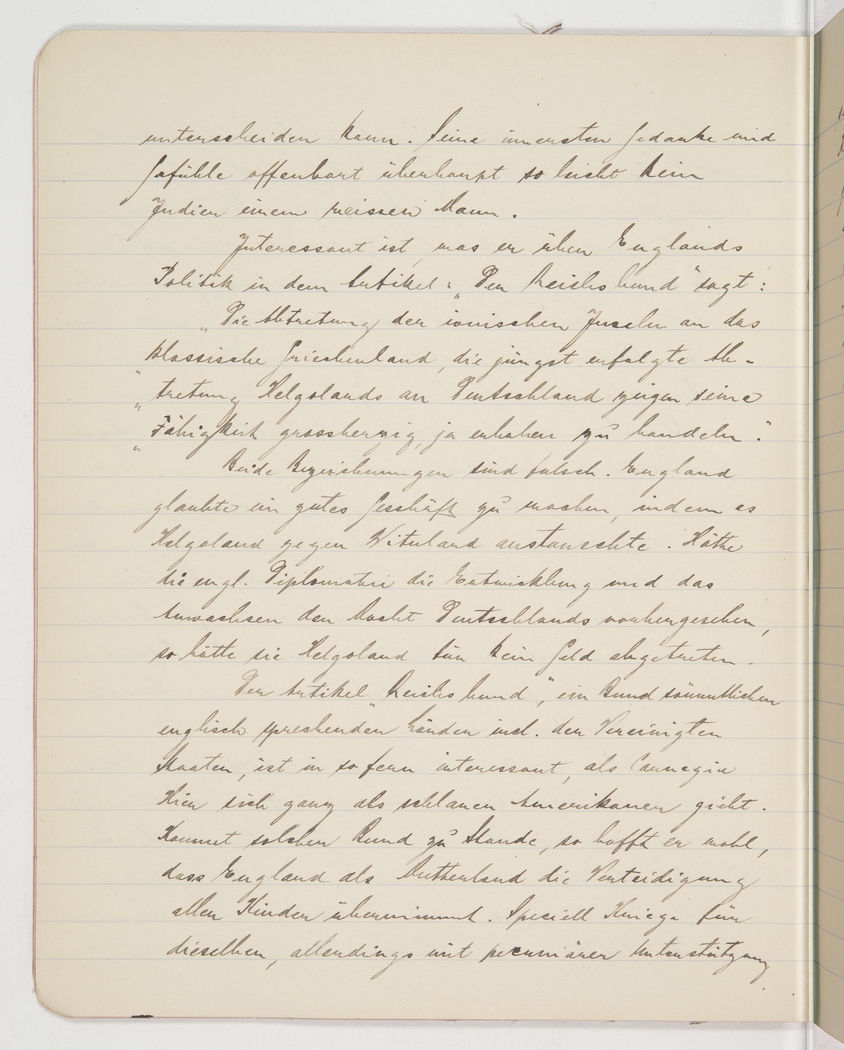 unterscheiden kann. Seine innersten Gedanke und
Gefühle offenbart überhaupt so leicht kein
Indier einem weissen Mann.
Interessant ist, was er über Englands
Politik in dem Artikel: „Der Reichsbund" sagt:
„Die Abtretung der ionischen Inseln an das
klassische Griechenland, die jüngst erfolgte Ab-
„tretung Helgolands an Deutschland zeigen seine
„Fähigkeit grossherzig, ja erhaben zu handeln."
Beide Bezeichnungen sind falsch. England
glaubte ein gutes Geschäft zu machen, indem es
Helgoland gegen Wituland austauschte. Hätte
die engl. Diplomatie die Entwicklung und das
Anwachsen der Macht Deutschlands vorhergesehen,
so hätte sie Helgoland für kein Geld abgetreten.
Der Artikel „Reichsbund", ein Bund sämmtlicher
englisch sprechenden Länder incl. der Vereinigten
Staaten, ist in so fern interessant, als Carnegie
Hier sich ganz als schlauer Amerikaner giebt.
Kommt solcher Bund zu Stande, so hofft er wohl,
dass England als Mutterland die Verteidigung
aller Kinder übernimmt. Speciell Kriege für
dieselben, allerdings mit pecuniärer Unterstützung